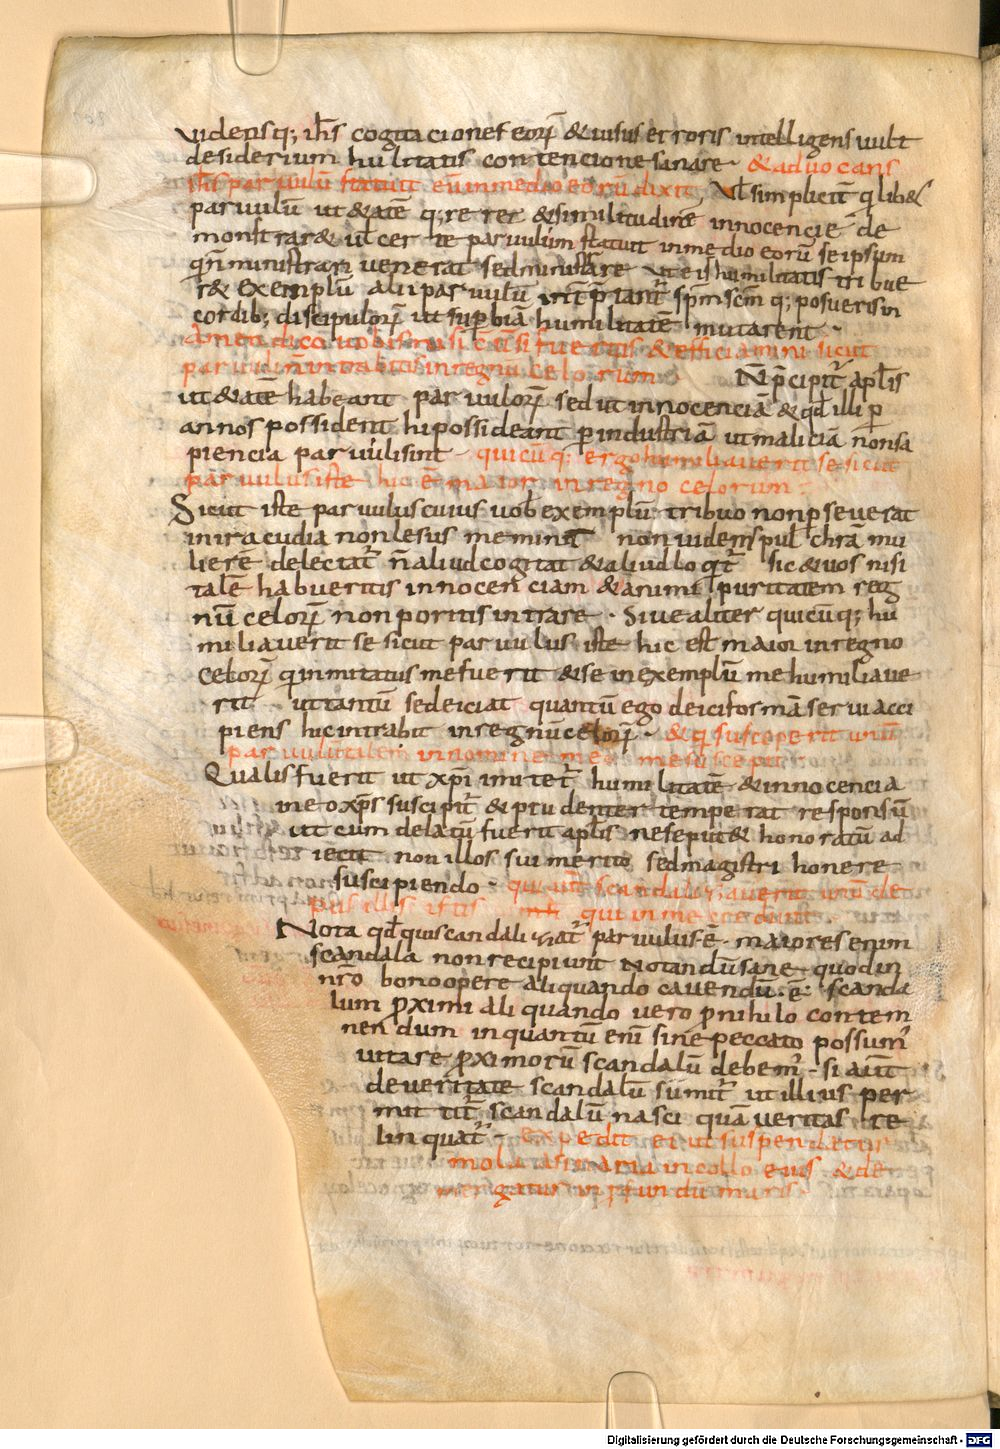 vidensq; ih̄s cogitacionef eorū &iusus erroris intelligens uult
desiderium hulitatis contencione sanare · & aduocans
ih̄s paruulū statuit eū inmedio eorū dixit, Ut̄ simpliciť q libe&
paruulū ut &atē q;rerer &similitudinē innocencie de
monstrar& ut̄ certe paruulum statuit inmedio eorū seipsum
qn̄ ministrari venerat sed ministrare ut eis humilitatis tribue
r& exemplū alii paruulū int̄p̄tant̄ sp̄m sc̄m q; posuerisin
cordib; discipulorū ut supbiā humilitatē mutarent ·
Amen dico uobis nisi c̄ūsi fueritis & efficiamini sicut
paruuli n̄ intrabitis in regnū celorum · N̄ p̄cipit̄ apl̄is
ut &atē habeant paruulorū sed ut innocenciā & qd̄ illi p
annos possident hi possideant p industriā ut malicia nonsa
piencia paruuli sint · quicūq; ergo humiliauerit se sicut
paruulus iste hic ē maior in regno celorum ·
Sicut iste paruulus cuius uob̄ exemplū tribuo non pseuerat
in iracudia non lesus meminit non uidens pul chrā mu
lierē delectat̄ n̄ aliud cogitat & aliud loqt̄ sic & uos nisi
talē habueritis innocen ciam & animi puritatem reg
nū celorū non poritis intrare · Siue aliter quicūq; hu
miliauerit se sicut paruulus iste hic est maior in regno
celorū q inmitatus me fuerit & se in exemplū me humiliaue
rit · ut tantū se deiciat quantū ego deieci formā serui acci
piens hic intrabit in regnū celorū · & q susceperit unū
paruulū talem in nomine meo me suscepit ·
Qualis fuerit ut xp̄i imitet̄ humilitatē & innocencia
in eo xp̄s suscipit̄ & prudenter temperat responsū
ut cum delatū fuerit apl̄is ne se put& honoratū ad
iecit non illos sui merito sed magistri honere
suscipiendo · qui aut̄ scandalizauerit unū de
pusillis istis qui in me credunt ·
Nota qd̄ qui scandalizat̄ paruulus ē · maiores enim
scandala non recipiunt Notandū sane quod in
nr̄o bono opere aliquando cauendū · ē · scanda
lum pximi aliquando uero p nihilo contem
nen dum in quantū eni sine peccato possum'
uitare pximorū scandalū debem' · si aut̄
de ueritate scandalū sumit̄ utilius per
mit tit̄ scandalū nasci quā ueritas re
lin quat̄ · expedit ei ut suspendatur
mola asinaria in collo eius & de
mergatur in pfundū maris ·
Digitalisierung gefördert durch die Deutsche Forschungsgemeinschaft - DFG